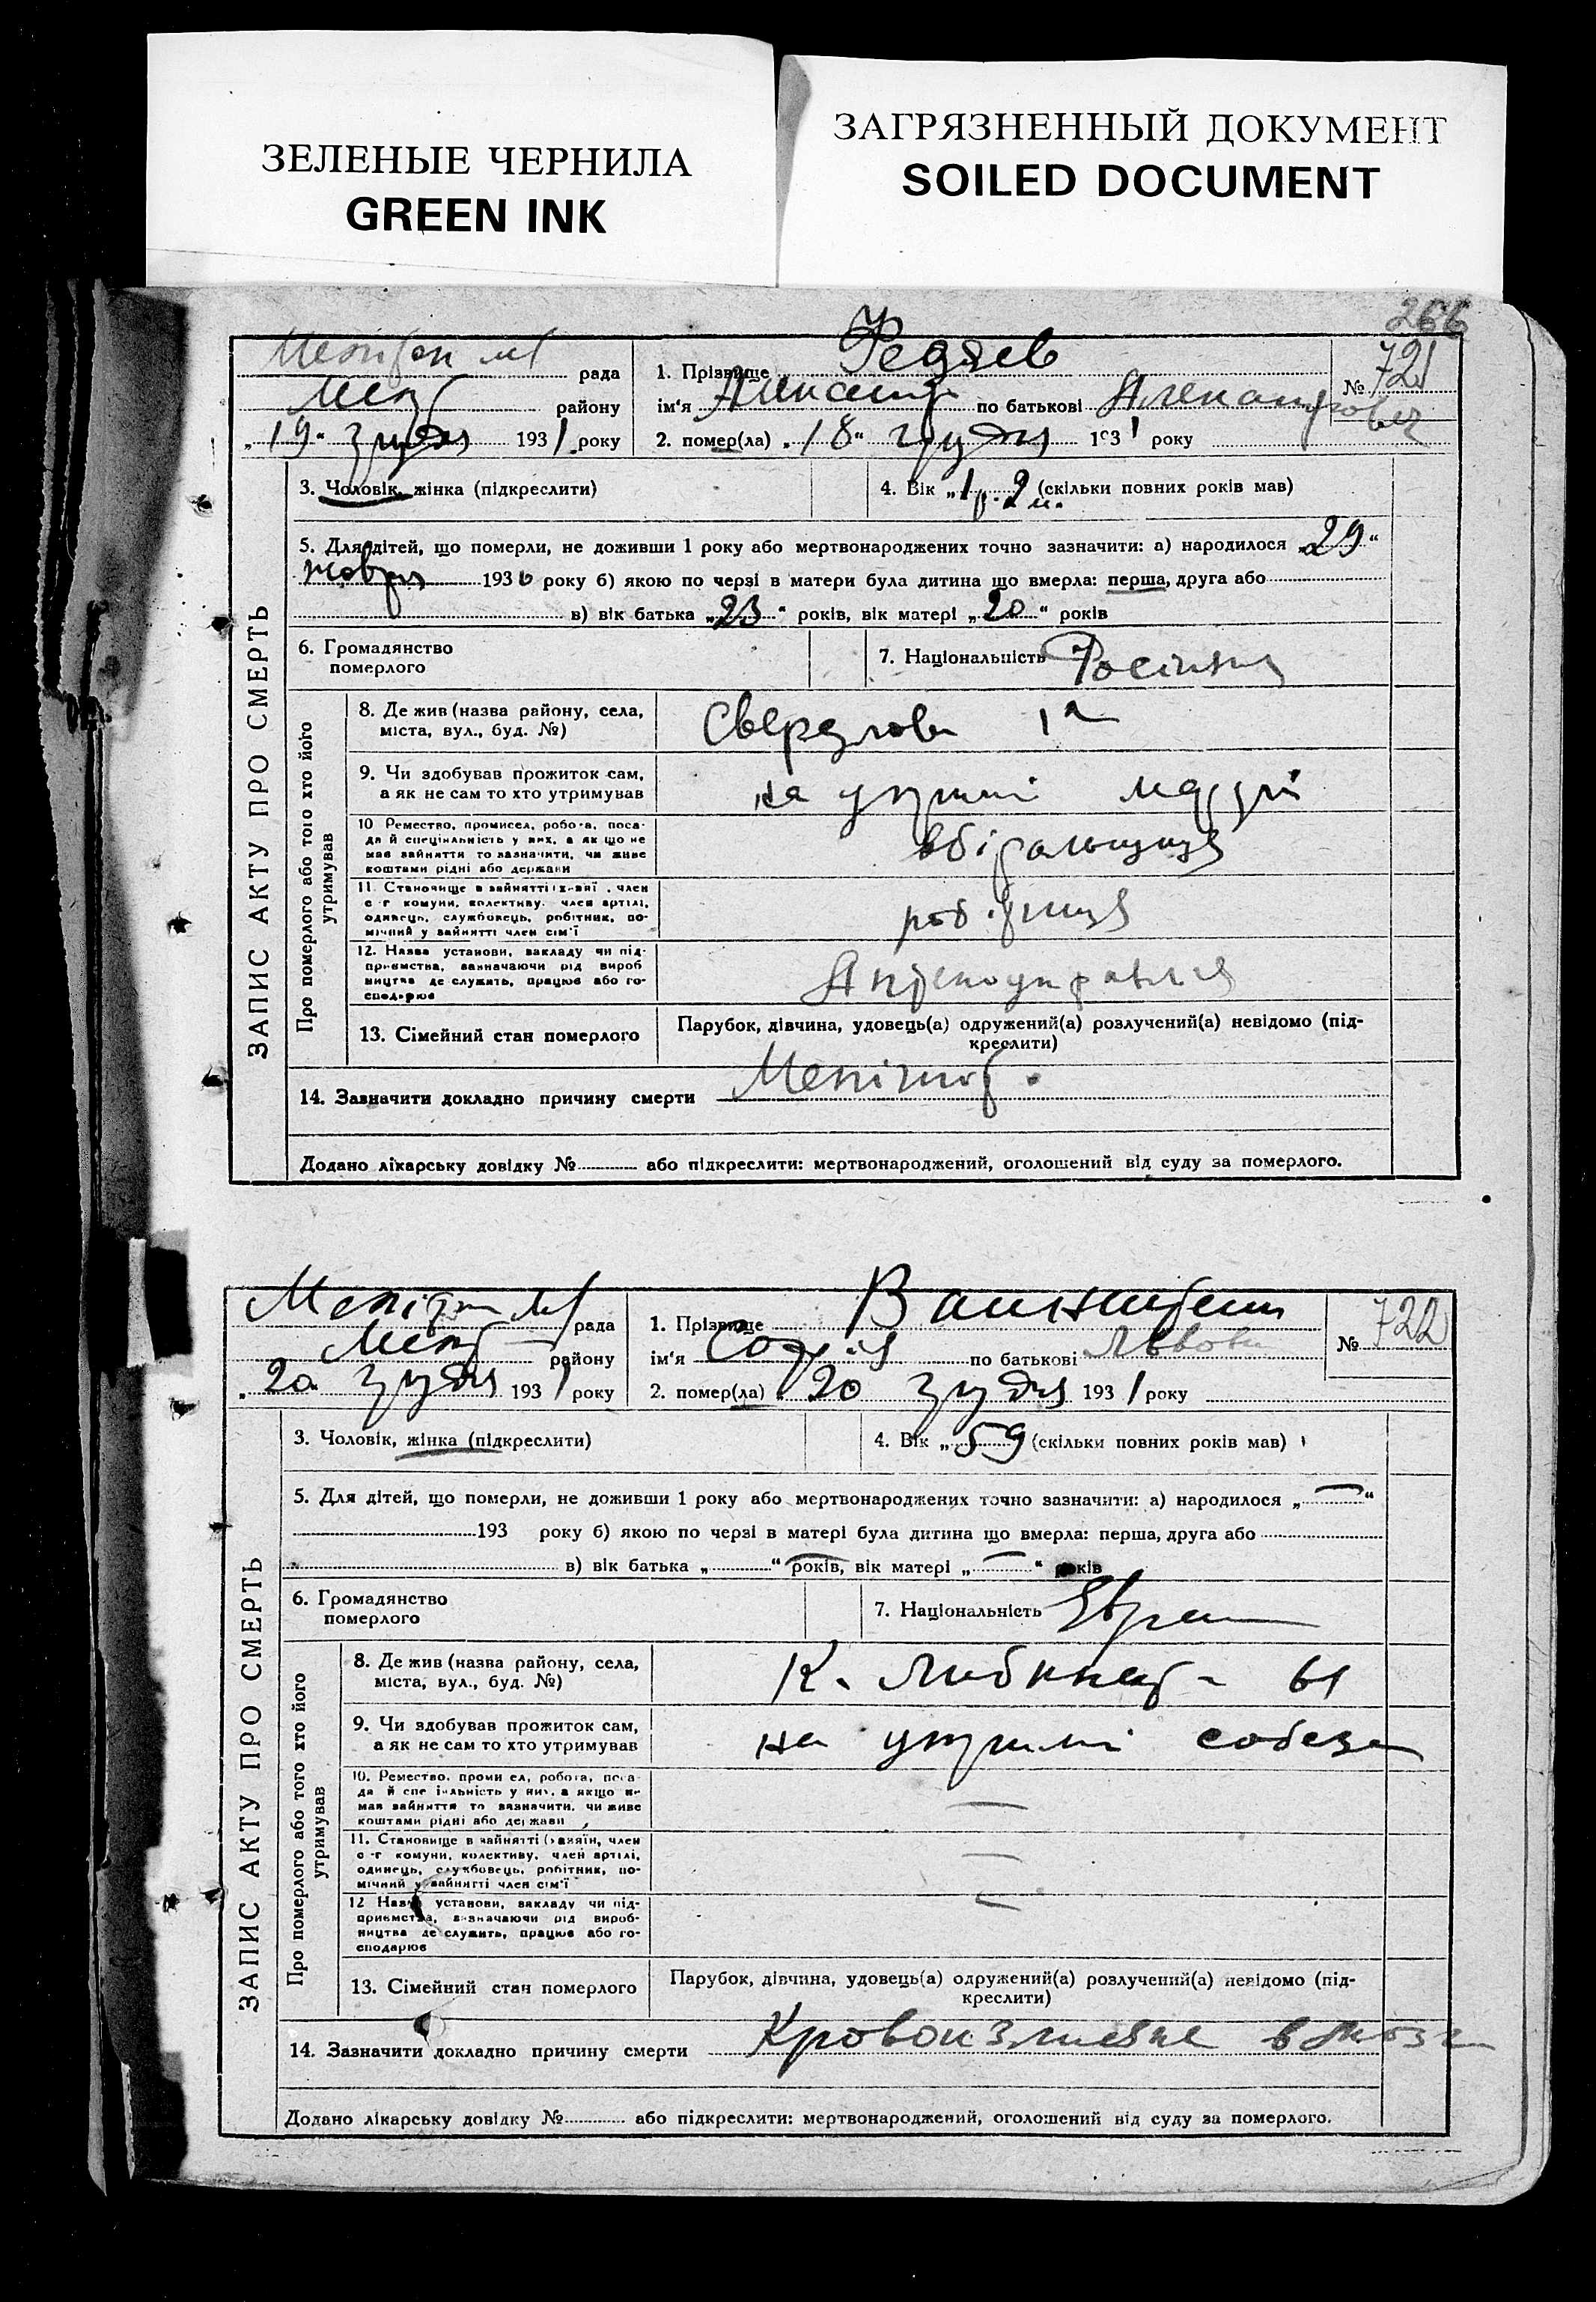 ЗЕЛЕНЫЕ ЧЕРНИЛА
GREEN INK
ЗАГРЯЗНЕННЫЙ ДОКУМЕНТ
SOILED DOCUMENT
266
ЗАПИС АКТУ ПРО СМЕРТЬ
рада
району
„19“ грудня 1931 року
1. Прізвище Федяев
ім'я Александр по батькові Александрович
№ 721
2. помер(ла) „18“ грудня 1931 року
3. Чоловік, жінка (підкреслити)
4. Вік „1 р. 2 м. (скільки повних років мав)
5. Для дітей, що померли, не доживши 1 року або мертвонароджених точно зазначити: а) народилося „29“
жовтня 1930 року б) якою по черзі в матери була дитина що вмерла: перша, друга або
в) вік батька „23“ років, вік матері „20“ років
6. Громадянство
померлого
7. Національність Росіянин
Про померлого або того хто його
утримував
8. Де жив (назва району, села,
міста, вул., буд. №)
Свердлова 1а
9. Чи здобував прожиток сам,
а як не сам то хто утримував
на утримі матері
10 Ремество, промисел, робота, поса-
да й спеціяльність у них, а як що не
мав зайняття то зазначити, чи живе
коштами рідні або держави
вбіральниця
11. Становище в зайнятті (хазяї , член
с-г комуни, колективу, член артілі,
одинець, службовець, робітник, по-
мічний у зайнятті член сім'ї
робітниця
12. Назва установи, закладу чи під-
приємства, зазначаючи рід вироб
ництва де служить, працює або го-
сподарює
Аптекоуправління
13. Сімейний стан померлого
Парубок, дівчина, удовець(а) одружений(а) розлучений(а) невідомо (під-
креслити)
14. Зазначити докладно причину смерти Менінгіт.
Додано лікарську довідку № або підкреслити: мертвонароджений, оголошений від суду за померлого.
ЗАПИС АКТУ ПРО СМЕРТЬ
рада
району
„20 грудня 1931 року
1. Прізвище
ім'я Софія по батькові Львовн
№ 722
2. помер(ла) „20 грудня 1931 року
3. Чоловік, жінка (підкреслити)
4. Вік „59 (скільки повних років мав)
5. Для дітей, що померли, не доживши 1 року або мертвонароджених точно зазначити: а) народилося „—“
193 року б) якою по черзі в матері була дитина що вмерла: перша, друга або
в) вік батька „ “ років, вік матері „—“ років
6. Громадянство
померлого
7. Національність Евр
Про померлого або того хто його
утримував
8. Де жив (назва району, села,
міста, вул., буд. №)
К. Либкнехт 61
9. Чи здобував прожиток сам,
а як не сам то хто утримував
на утримі собеза
10. Ремество, промисел, робота, поса-
да й спеціяльність у них, а якщо не
мав зайняття то зазначити, чи живе
коштами рідні або держави
—
11. Становище в зайнятті (хазяїн, член
с-г комуни, колективу, член артілі,
одинець, службовець, робітник, по-
мічний у зайнятті член сім'ї
—
12 Назва установи, закладу чи під-
приємства, зазначаючи рід вироб-
ництва де служить, працює або го-
сподарює
—
13. Сімейний стан померлого
Парубок, дівчина, удовець(а) одружений(а) розлучений(а) невідомо (під-
креслити)
14. Зазначити докладно причину смерти Кровоизлияние в мозг
Додано лікарську довідку № або підкреслити: мертвонароджений, оголошений від суду за померлого.